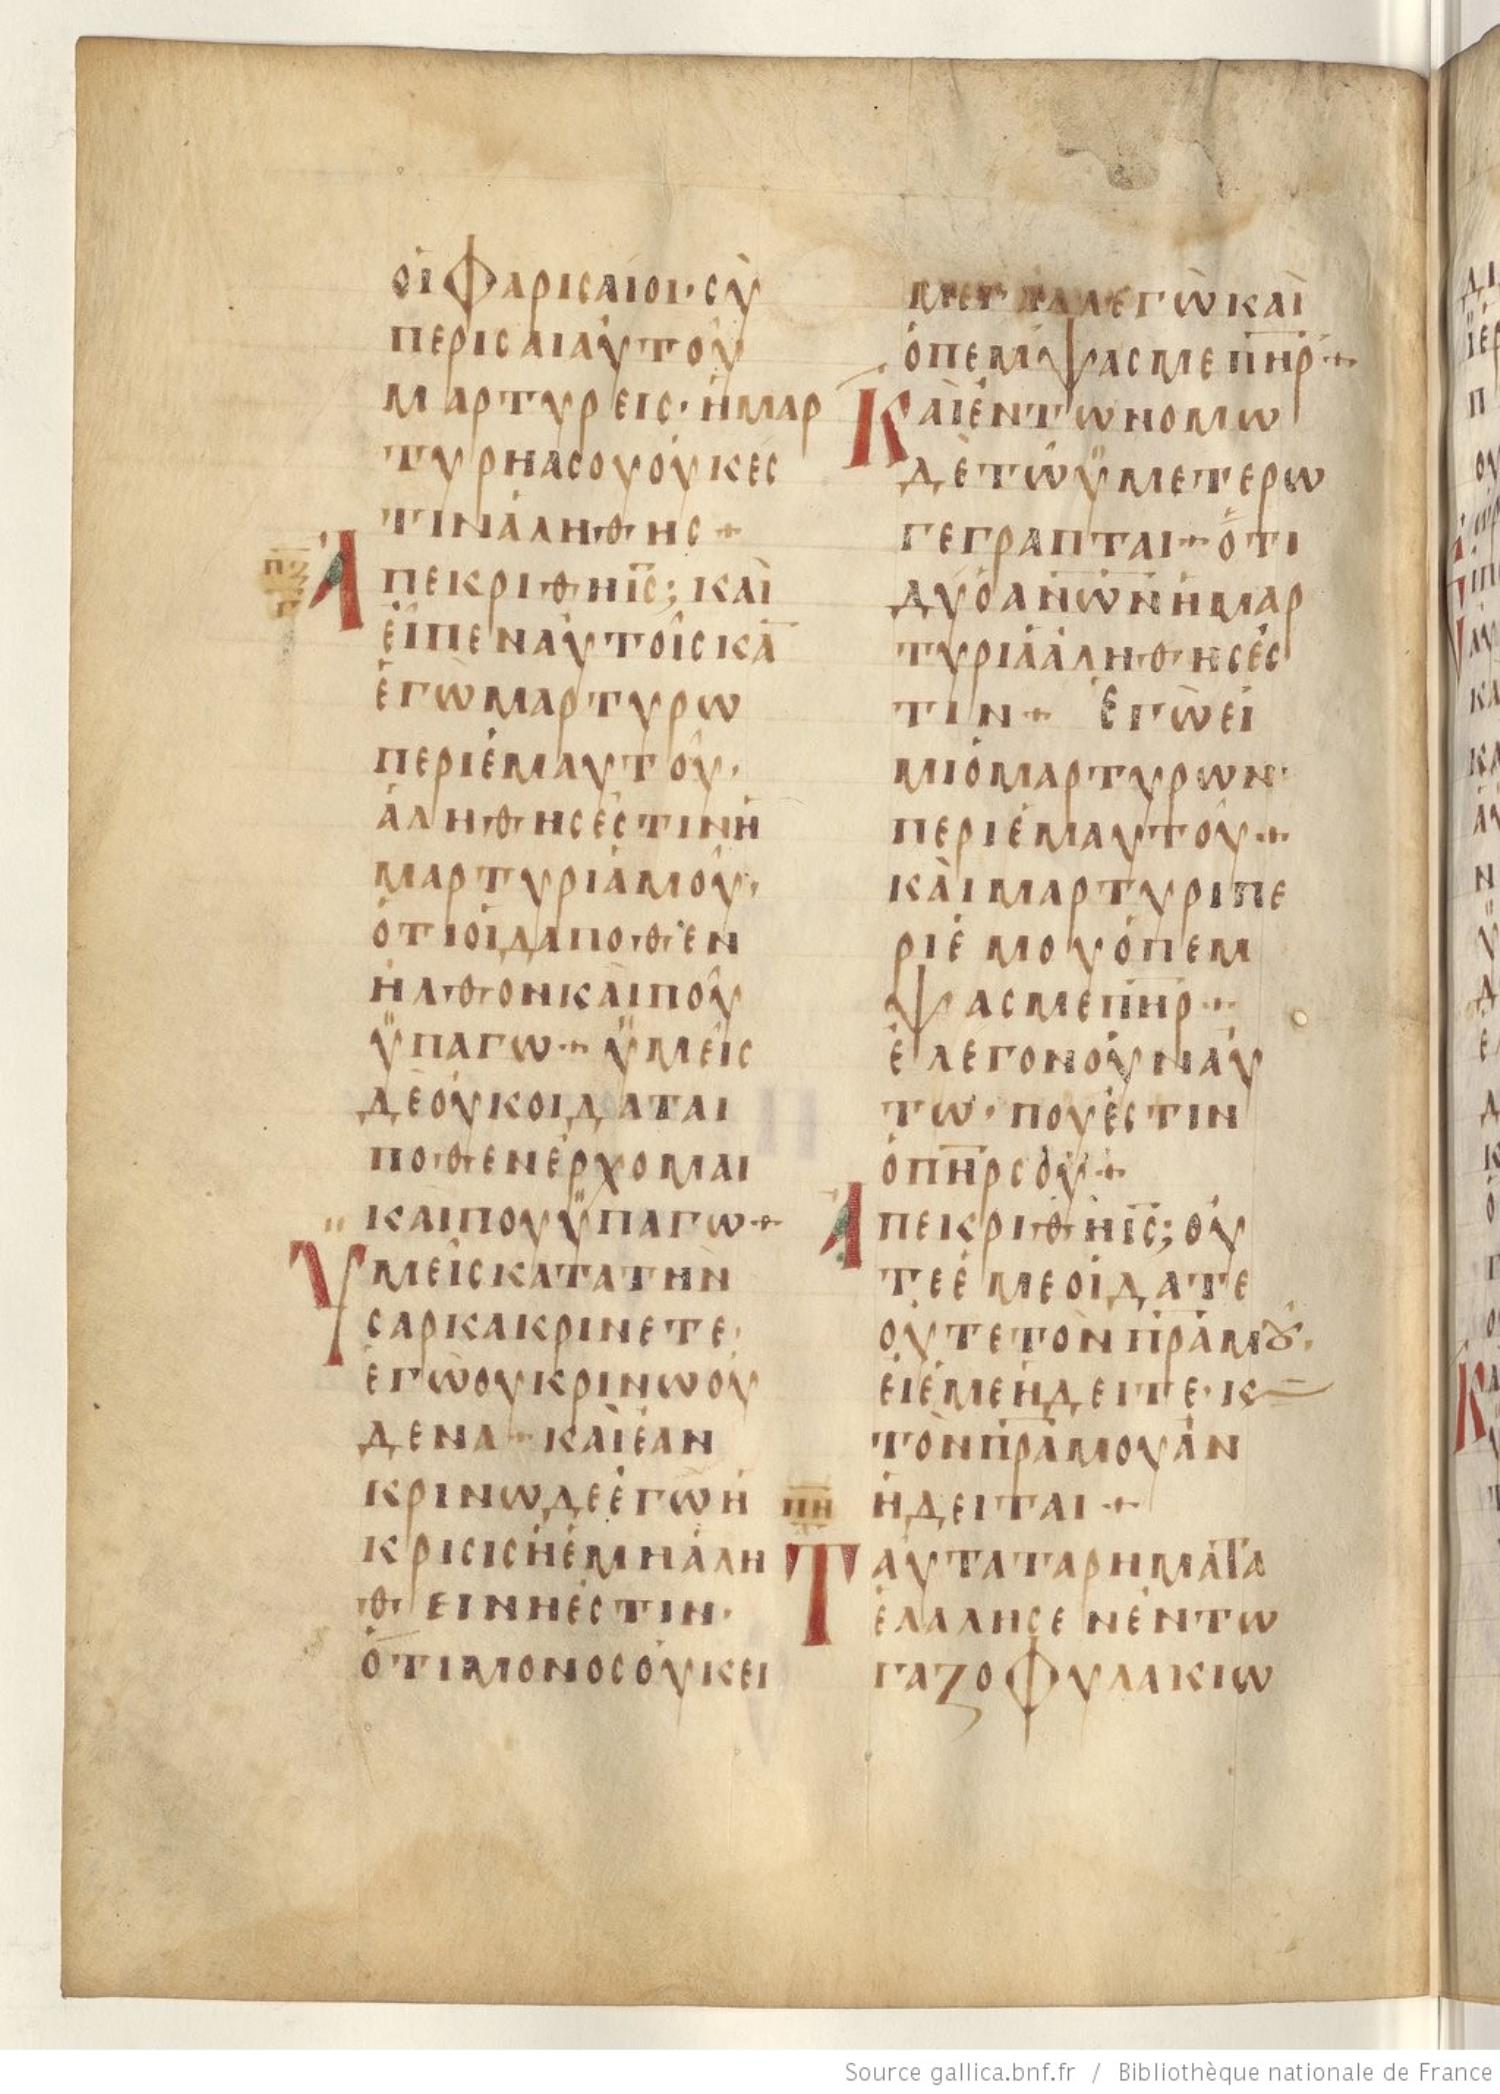 ὁι φαρισαίοι· σὺ
περὶ σαιαυτοῦ
μαρτυρεις· ἡ μαρ
τυρηα σου οὐκ ἐς
τιν ἀληθης +
Ἀπεκριθη ις̅; και
εἶπεν αυτοῖς κἀ̅
ἐγὼ μαρτυρω
περι ἐμαυτοῦ·
ἀληθης ἐστιν ἡ
μαρτυριά μοῦ·
ὁτι οἶδα ποθεν
ἠλθον και ποῦ
ϋπαγω + ϋμεῖς
δὲ οὐκ οιδαται
ποθεν ἐρχομαι
και που ϋπαγω +
Υμεῖς κατα την
σαρκα κρινετε·
ἐγὼ ου κρινω οὐ
δενα + και ἐαν
κρινω δε ἐγὼ ἡ
κρισις ἡ ἐμη ἀλη
θεινη ἐστιν·
ὁτι μονος οὐκ ει
ἐγὼ και
ὁ πεμψας με π̅η̅ρ +
Και ἐν τω νομω
δὲ τῶ ϋμετερω
γεγραπται + ὅτι
δυό ἀν̅ω̅ν̅ ἡ μαρ
τυριά ἀληθης ἐς
τιν + Ἐγὼ εἰ
μι ὁ μαρτυρων·
περι ἐμαυτοῦ +
κὰι μαρτυρι πε
ρι ἐμου ὁ πεμ
ψας με π̅η̅ρ +
ἐλεγον οὐν αὐ
τω· που ἐστιν
ὁ π̅η̅ρ σου +
Ἀπεκριθη ις̅; οὐ
τε ἐμε οἰδατε
οὐτε τὸν π̅ρ̅α̅ μȣ·
εἰ ἐμε ἠδειτε· κ
τὸν π̅ρ̅α̅ μου ἀν
ἠδειται +
π̅η̅
Ταῦτα τα ρηματα
ἐλαλησεν ἐν τω
γαζοφυλακιω
Source gallica.bnf.fr / Bibliothèque nationale de France